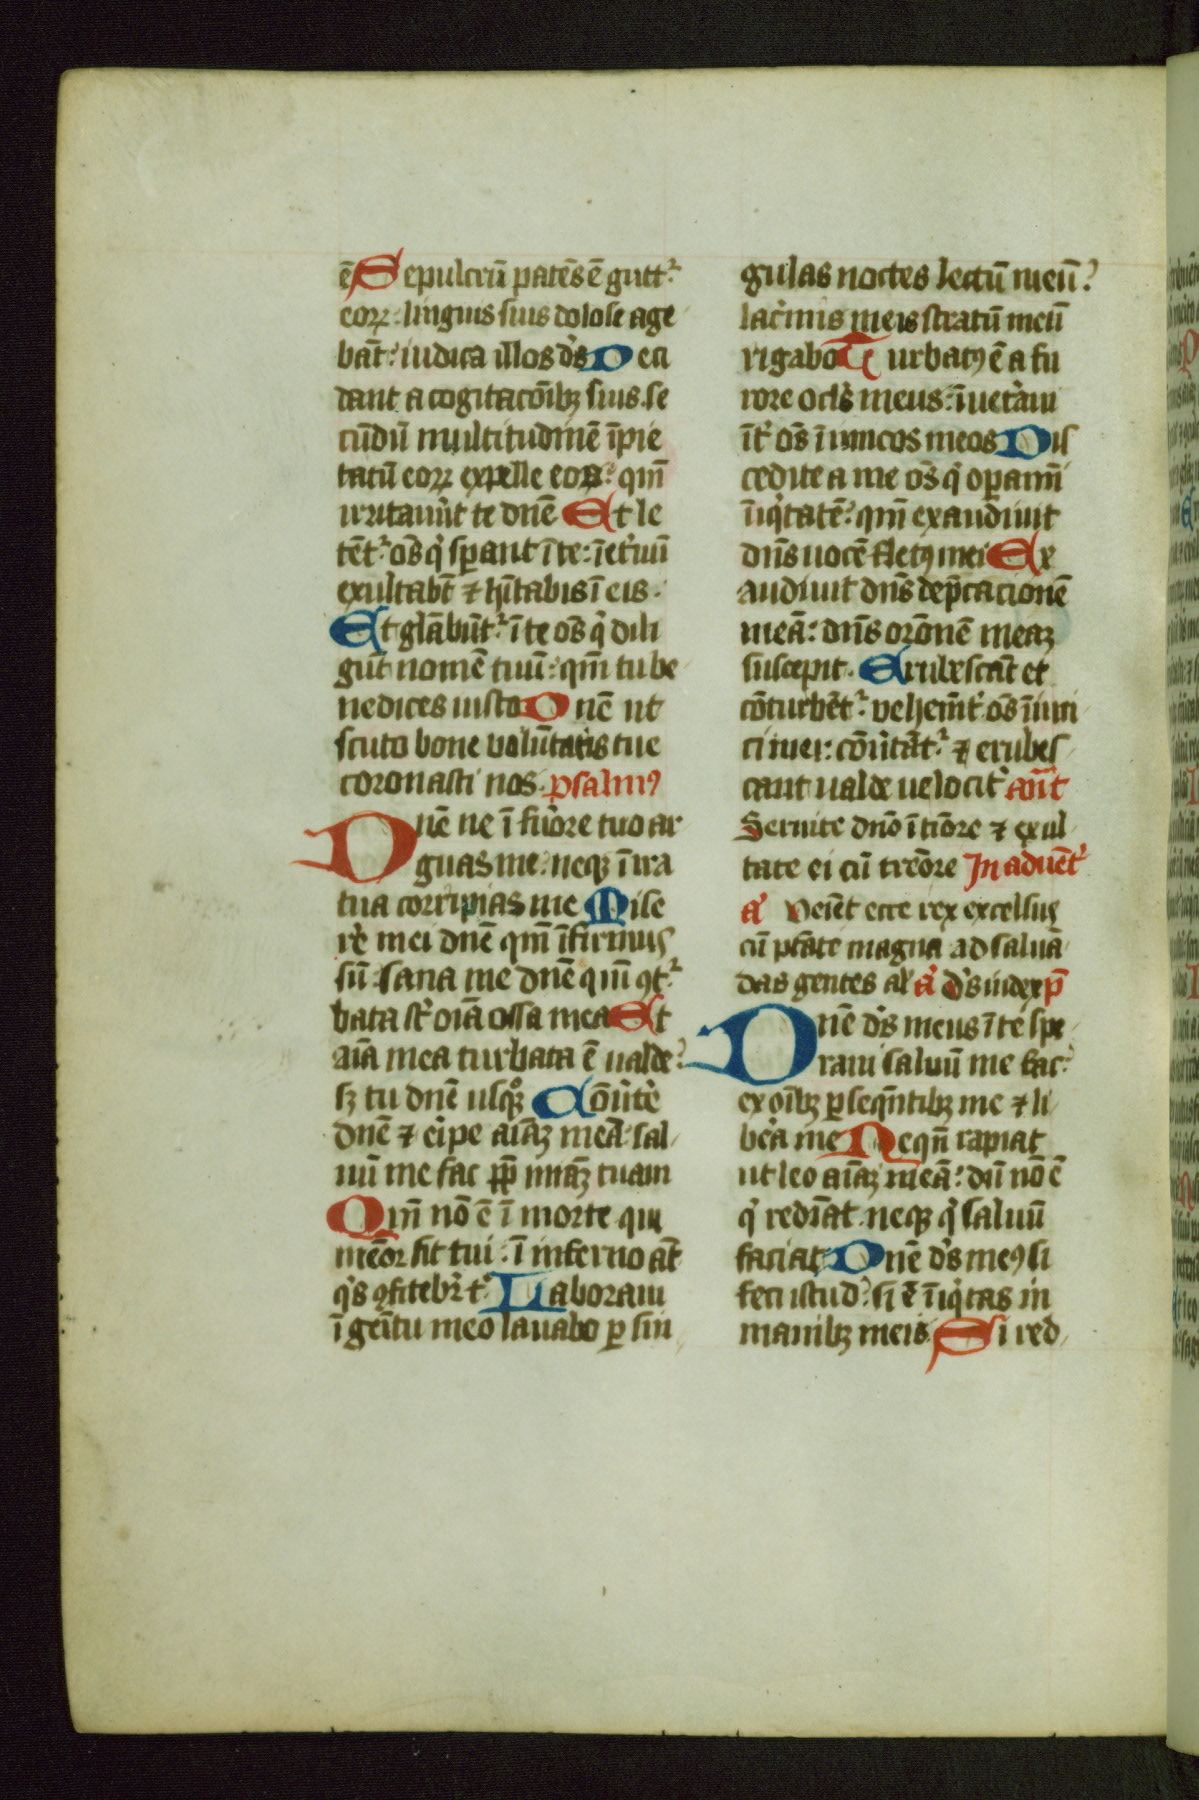 ē Sepulcrū patēs ē gutt᷑
eoꝝ: linguis suis dolose age
bāt: iudica illos d̓s Deci
dant a cogitacōibꝫ suis. se
cūdū multitudinē īpie
tatū eoꝝ expelle eos: qm̄
irritauūt te dn̄e Et le
tēt᷑ om̄s q̓ sꝑant ī te: ī et̓nū
exultabt̄ ⁊ hītabis ī eis.
Et gl̄abūt᷑ ī te om̄s q̓ dili
gūt nomē tuū: qm̄ tu be
nedices iusto Dn̄e ut
scuto bone volūtatis tue
coronasti nos. psalmꝰ
Dn̄e ne ī furore tuo ar
guas me: neqꝫ ī ira
tua corripias me Mise
re̓ mei dn̄e qm̄ īfirmus
sū: sana me dn̄e qm̄ ꝯt᷑
bata st̓ oīa ossa mea Et
aīa mea turbata ē ualde:
sꝫ tu dn̄e usqꝫ̊ Cōūte̓
dn̄e ⁊ eipe aīaꝫ meā: sal
uū me fac ꝓp̄ miāꝫ tuam
Qm̄ nō ē ī morte qui
memōr sit tui: ī inferno aūt
q̓s ꝯfitebit᷑ t̓ Laboraui
ī gemītu meo lauabo ꝑ sin
gulas noctes lectū meū:
lacr̓mis meis stratū meū
rigabo Turbatꝰ ē a fu
rore ocl̓s meus: īuet̓aui
īt̓ om̄s īimicos meos Dis
cedite a me om̄s q̓ oꝑamī
īiq̓tatē: qm̄ exaudiuit
dn̄s uocē fletꝰ mei Ex
audiuit dn̄s dep̄cacionē
meā: dn̄s orōnē meaꝫ
suscepit. Erubescāt et
cōturbēt᷑ vehem̄t̓ om̄s īimi
ci mei: cōūtāt᷑ ⁊ erubes
cant ualde uelocit̓ ant̄
Seruite dn̄o ī tiōre ⁊ exul
tate ei cū treōre In aduēt᷑
a̓ Veiēt ecce rex excelsus
cū ptāte magna ad saluā
das gentes al̓ a̓ d̓s iudex p̄
Dn̄e d̓s meus ī te spe
raui saluū me fac:
ex oībꝫ ꝑseqn̄tibꝫ me ⁊ li
be̓a me Neqn̄ rapiat
ut leo aīaꝫ meā: dū nō ē
q̓ redīat neqꝫ q̓ saluū
faciat Dn̄e d̓s meꝰ si
feci istud: si ē īiq̓tas in
manibꝫ meis Si red